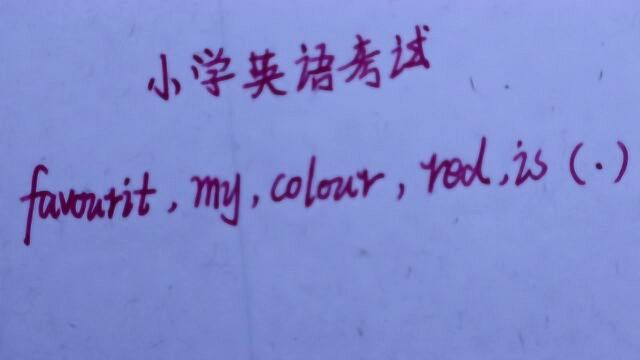 小学英语考试
favourit, my, colour, red, is (.)